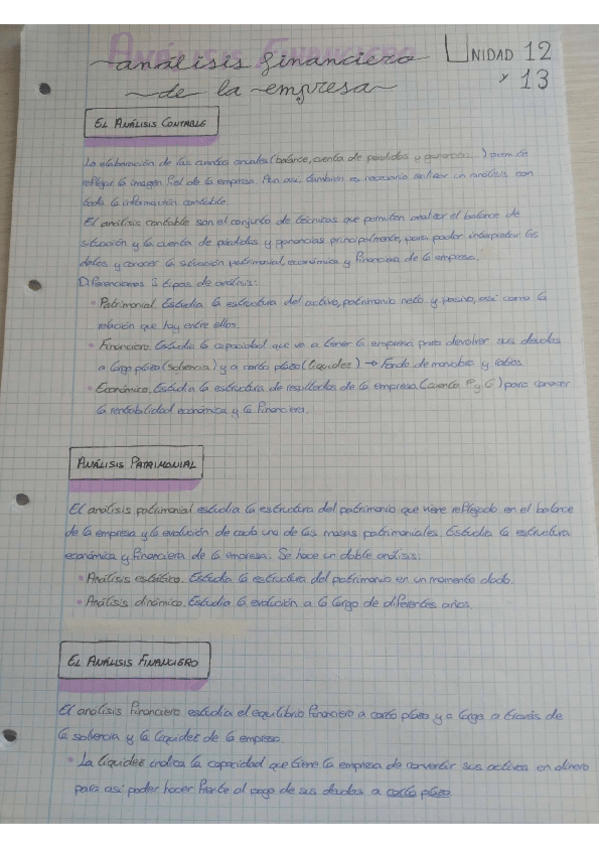 ANÁLISIS FINANCIERO
análisis financiero
de la empresa
UNIDAD 12
y 13
EL ANÁLISIS CONTABLE
La elaboración de las cuentas anuales (balance, cuenta de pérdidas y ganancias...) permite
reflejar la imagen fiel de la empresa. Aun así, también es necesario realizar un análisis con
toda la información contable.
El análisis contable son el conjunto de técnicas que permiten analizar el balance de
situación y la cuenta de pérdidas y ganancias principalmente, para poder interpretar los
datos y conocer la situación patrimonial, económica y financiera de la empresa.
Diferenciamos 3 tipos de análisis:
• Patrimonial. Estudia la estructura del activo, patrimonio neto y pasivo, así como la
relación que hay entre ellos.
• Financiero. Estudia la capacidad que va a tener la empresa para devolver sus deudas
a largo plazo (solvencia) y a corto plazo (liquidez) → Fondo de maniobra y ratios.
• Económico. Estudia la estructura de resultados de la empresa (cuenta P y G) para conocer
la rentabilidad económica y la financiera.
ANÁLISIS PATRIMONIAL
El análisis patrimonial estudia la estructura del patrimonio que viene reflejado en el balance
de la empresa y la evolución de cada una de las masas patrimoniales. Estudia la estructura
económica y financiera de la empresa. Se hace un doble análisis:
• Análisis estático. Estudia la estructura del patrimonio en un momento dado.
• Análisis dinámico. Estudia la evolución a lo largo de diferentes años.
EL ANÁLISIS FINANCIERO
El análisis financiero estudia el equilibrio financiero a corto plazo y a largo a través de
la solvencia y la liquidez de la empresa.
• La liquidez indica la capacidad que tiene la empresa de convertir sus activos en dinero
para así poder hacer frente al pago de sus deudas a corto plazo.